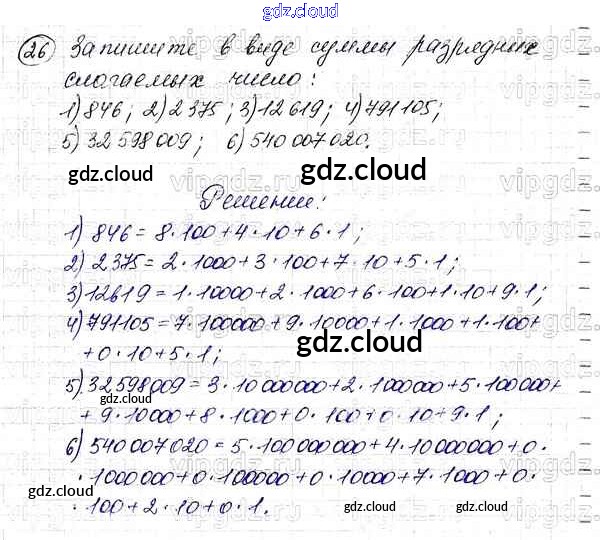 gdz.cloud
26 Запишите в виде суммы разрядных
слагаемых число:
1) 846; 2) 2 375; 3) 12 619; 4) 791 105;
5) 32 598 009; 6) 540 007 020.
gdz.cloud gdz.cloud
Решение:
1) 846 = 8·100+4·10+6·1;
2) 2 375 = 2·1000+3·100+7·10+5·1;
3) 12619 = 1·10000+2·1000+6·100+1·10+9·1;
4) 791105 = 7·100000+9·10000+1·1000+1·100+
+0·10+5·1;
gdz.cloud
5) 32598009 = 3·10000000+2·1000000+5·100000+
+9·10000+8·1000+0·100+0·10+9·1;
6) 540007020 = 5·100000000+4·10000000+0·
·1000000+0·100000+0·10000+7·1000+0·
gdz.cloud
·100+2·10+0·1.
gdz.cloud